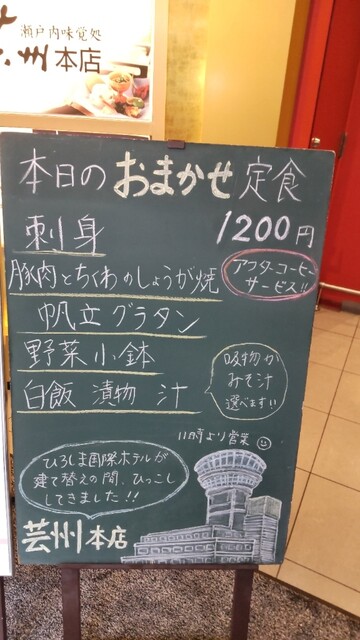 瀬戸内味覚処
芸州本店
本日のおまかせ定食
1200円
刺身
豚肉とちくわのしょうが焼
アフターコーヒー
サービス!!
帆立グラタン
野菜小鉢
白飯 漬物 汁
吸物か
みそ汁
選べます!!
11時より営業
ひろしま国際ホテルが
建て替えの間、ひっこし
してきました!!
芸州本店